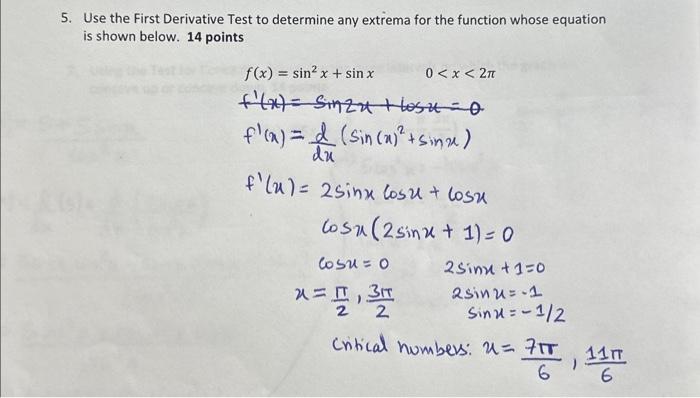 5. Use the First Derivative Test to determine any extrema for the function whose equation
is shown below. 14 points
f(x) = sin² x + sin x 0 < x < 2π
f'(x) = sin2x + cosx = 0
f'(x) = d/dx (sin(x)² + sinx)
f'(x) = 2sinx cosx + cosx
cosx(2sinx + 1) = 0
cosx = 0 2sinx + 1 = 0
x = π/2, 3π/2 2sinx = -1
sinx = -1/2
Critical numbers: x = 7π/6, 11π/6